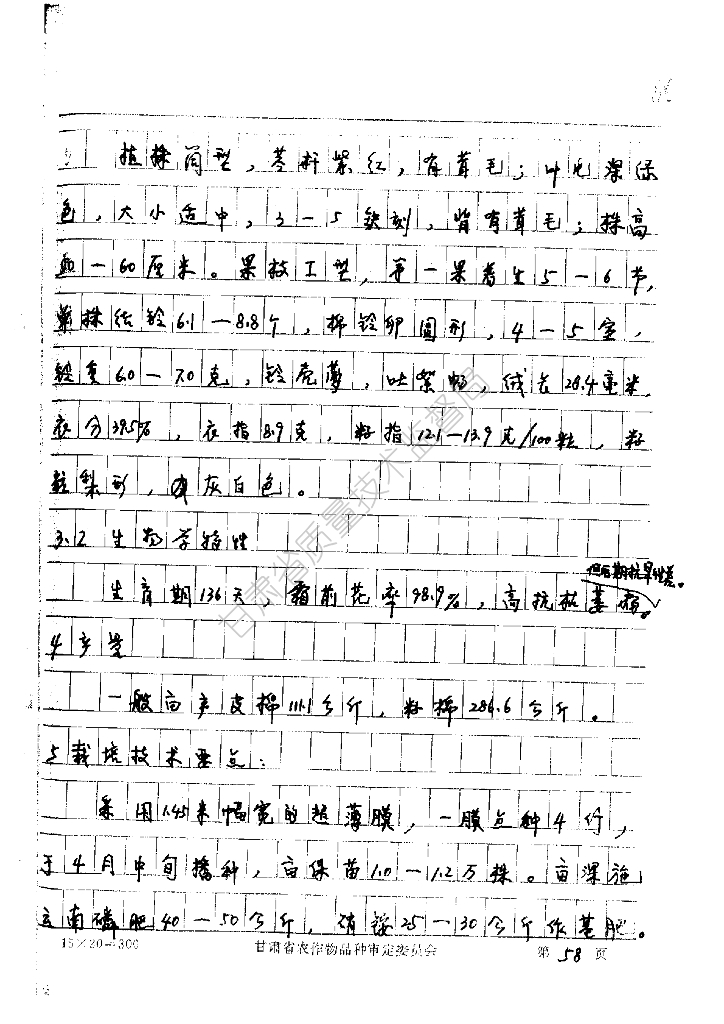 植株筒型，茎秆紫红，有茸毛；叶色深绿
色，大小适中，3－5缺刻，背有茸毛；株高
－60厘米。果枝工型，第一果着生5－6节，
单株结铃6.1－8.8个，棉铃卵圆形，4－5室，
铃重6.0－7.0克，铃壳薄，吐絮畅，绒长28.4毫米，
衣分39.5%，衣指8.9克，籽指12.1－13.9克/100粒，籽
粒梨形，灰白色。
3.2生物学特性
但后期抗旱性差。
生育期136天，霜前花率98.9%，高抗枯萎病。
4产量
一般亩产皮棉111.1公斤，籽棉286.6公斤。
5栽培技术要点：
采用1.45米幅宽的超薄膜，一膜点种4行，
于4月中旬播种，亩保苗1.0－1.2万株。亩深施
云南磷肥40－50公斤，硝铵25－30公斤作基肥。
15×20＝300 甘肃省农作物品种审定委员会 第58页
甘肃省质量技术监督局